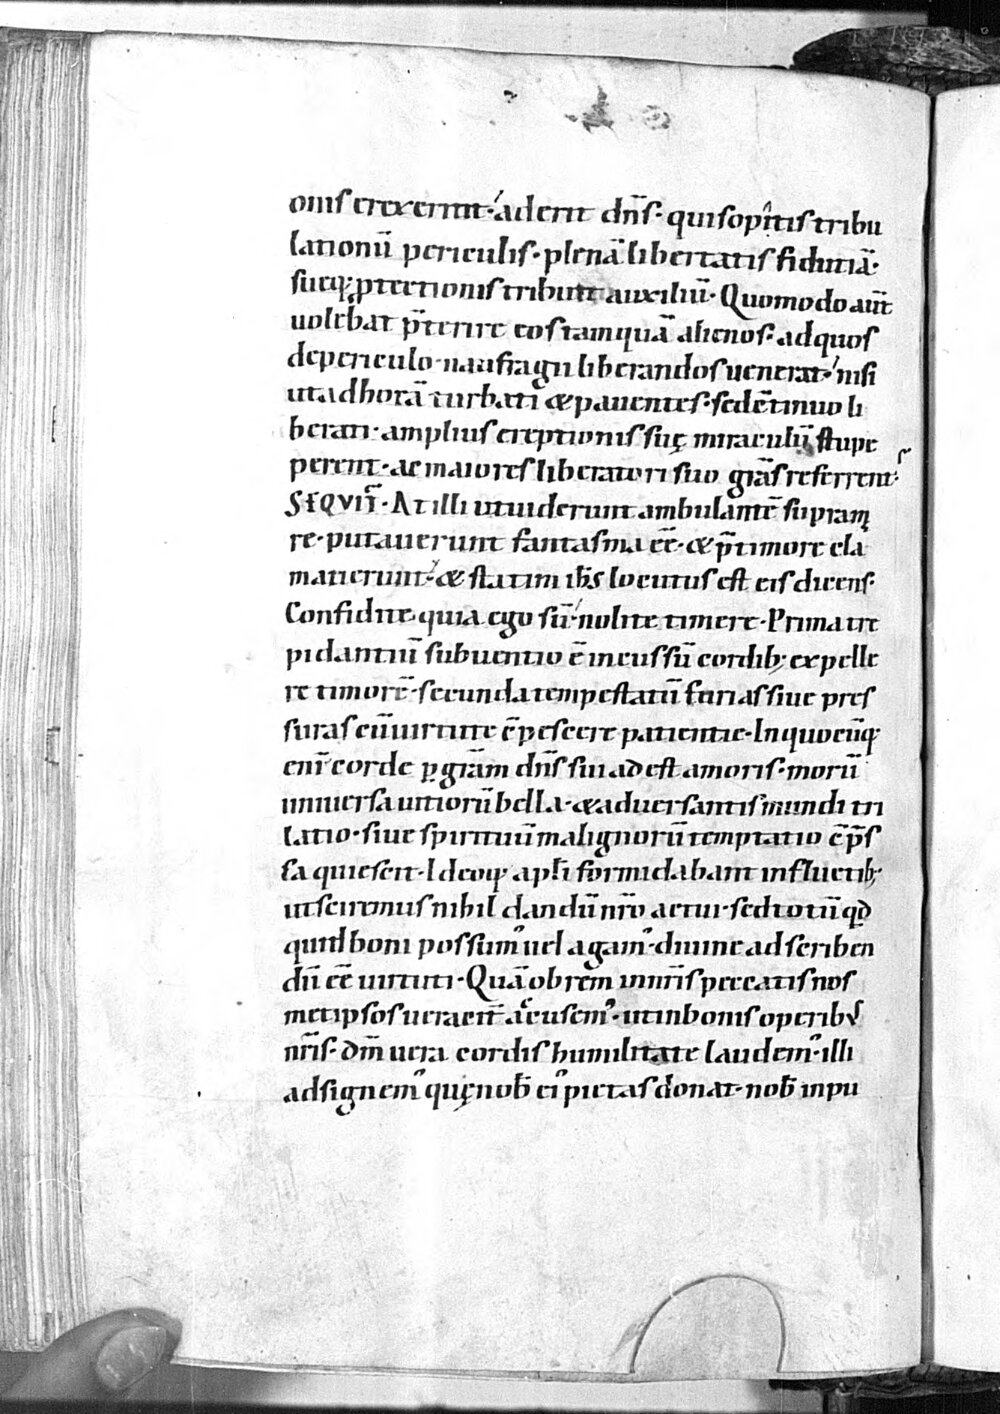 onis erexerint· aderit dn̄s· qui sopitis tribu
lationū periculis· plenā libertatis fidutiā·
suęq; ꝓtectionis tribuit auxiliū· Quomodo aūt
uolebat p̄terire eos tamquā alienos· ad quos
de periculo naufragii liberandos uenerat· nisi
ut ad horā turbati & pauentes· sed c̄tinuo li
berati· amplius ereptionis suę miraculū stupe
perent· ac maiores liberatori suo grās referrent·
SEQVIT̄· At illi ut uiderunt ambulantē supra ma
re· putauerunt fantasma eē· & p̄ timore cla
mauerunt· & statim ih̄s locutus est eis dicens·
Confidite quia ego sū· nolite timere· Prima tre
pidantiū subuentio ē incussū cordib; expelle
re timorē· secunda tempestatū furias siue pres
suras cū uirtute c̄pescere patientie· In quocūq;
enī corde ꝑ grām dn̄s sui adest amoris· morū
uniuersa uitiorū bella· & aduersantis mundi tri
latio· siue spirituū malignorū temptatio c̄p̄s
sa quiescit· Ideoq; apl̄i formidabant in fluctib;
ut sciremus nihil dandū nr̄o actui· sed totū qd̄
quid boni possum' uel agam'· diuine ad scriben
dū eē uirtuti· Quā ob rem in nr̄is peccatis nos
met ipsos ueracit̄ accusem'· ut in bonis operib;
nr̄is· dm̄ uera cordis humilitate laudem'· illi
adsignem' quę nob̄ ei' pietas donat· nob̄ inpu